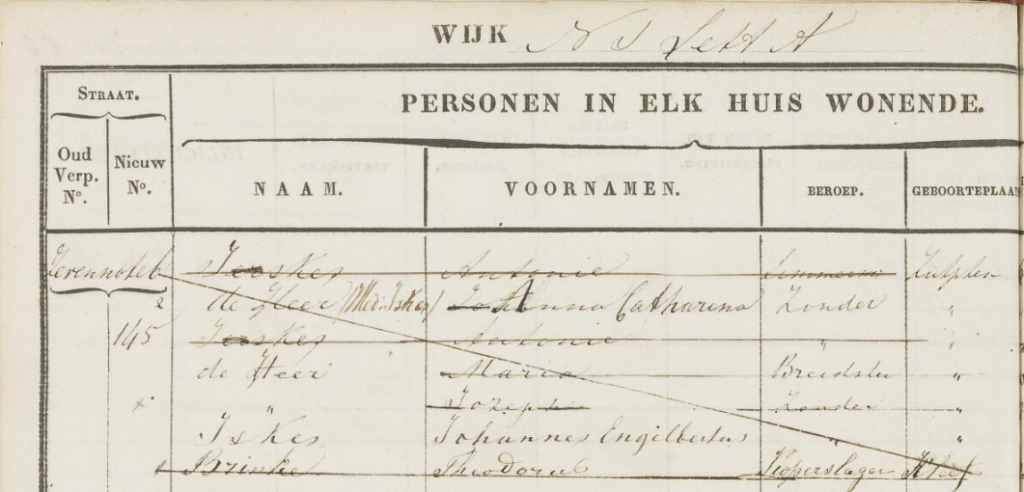 WIJK N I Lett A
STRAAT.
PERSONEN IN ELK HUIS WONENDE.
Oud Verp. No.
Nieuw No.
NAAM.
VOORNAMEN.
BEROEP.
GEBOORTEPLAA
Iserskes Antonie Zutphen
de Heer Johanna Catharina Zonder "
145 Iserskes Antonie " "
de Heer Maria Breidster "
" Jozeph Zonder "
Iskes Johannes Engilbertus " "
Brinke Theodorus Koperslager